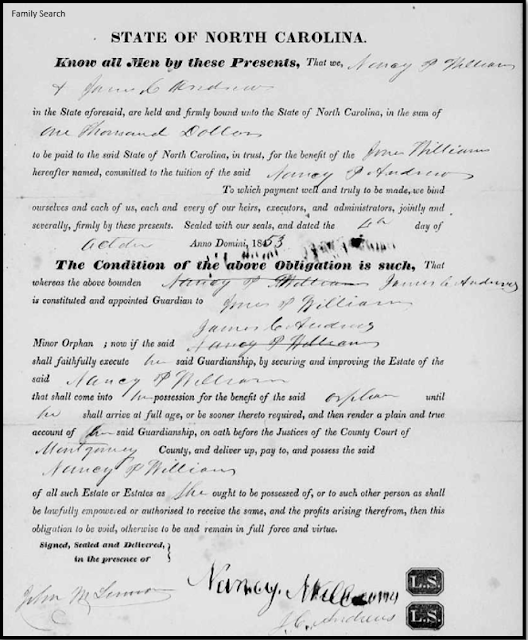 Family Search
STATE OF NORTH CAROLINA.
Know all Men by these Presents, That we, Nancy P Williams
& James C Andrews
in the State aforesaid, are held and firmly bound unto the State of North Carolina, in the sum of
One Thousand Dollars
to be paid to the said State of North Carolina, in trust, for the benefit of the Jones Williams
hereafter named, committed to the tuition of the said Nancy P Andrews
To which payment well and truly to be made, we bind
ourselves and each of us, each and every of our heirs, executors, and administrators, jointly and
severally, firmly by these presents. Sealed with our seals, and dated the 4th day of
Anno Domini, 1853
The Condition of the above Obligation is such, That
whereas the above bounden Nancy P Williams James C Andrews
is constituted and appointed Guardian to Jones P William
James C Andrews
Minor Orphan ; now if the said Nancy P Williams
shall faithfully execute he said Guardianship, by securing and improving the Estate of the
said Nancy P William
that shall come into he possession for the benefit of the said orphan until
he shall arrive at full age, or be sooner thereto required, and then render a plain and true
account of said Guardianship, on oath before the Justices of the County Court of
Montgomery County, and deliver up, pay to, and possess the said
Nancy P William
of all such Estate or Estates as She ought to be possessed of, or to such other person as shall
be lawfully empowered or authorised to receive the same, and the profits arising therefrom, then this
obligation to be void, otherwise to be and remain in full force and virtue.
Signed, Sealed and Delivered,
in the presence of
John McLennon
Nancy Williams L.S.
J. C. Andrews L.S.